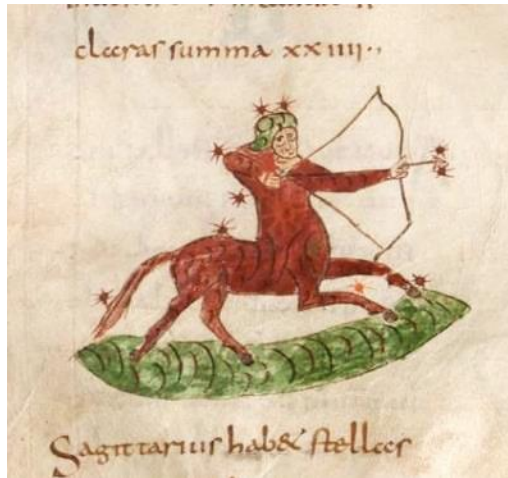 cleras summa xxiiii
Sagittarius hab& stellas